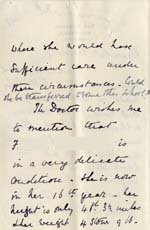 where she would have
sufficient care under
their circumstances. Could
she be transferred to some other School?
The Doctor wishes me
to mention that
F is
in a very delicate
condition - She is now
in her 16th year - her
height is only 4ft 3½ inches
& her weight 4 stone 9 lb.